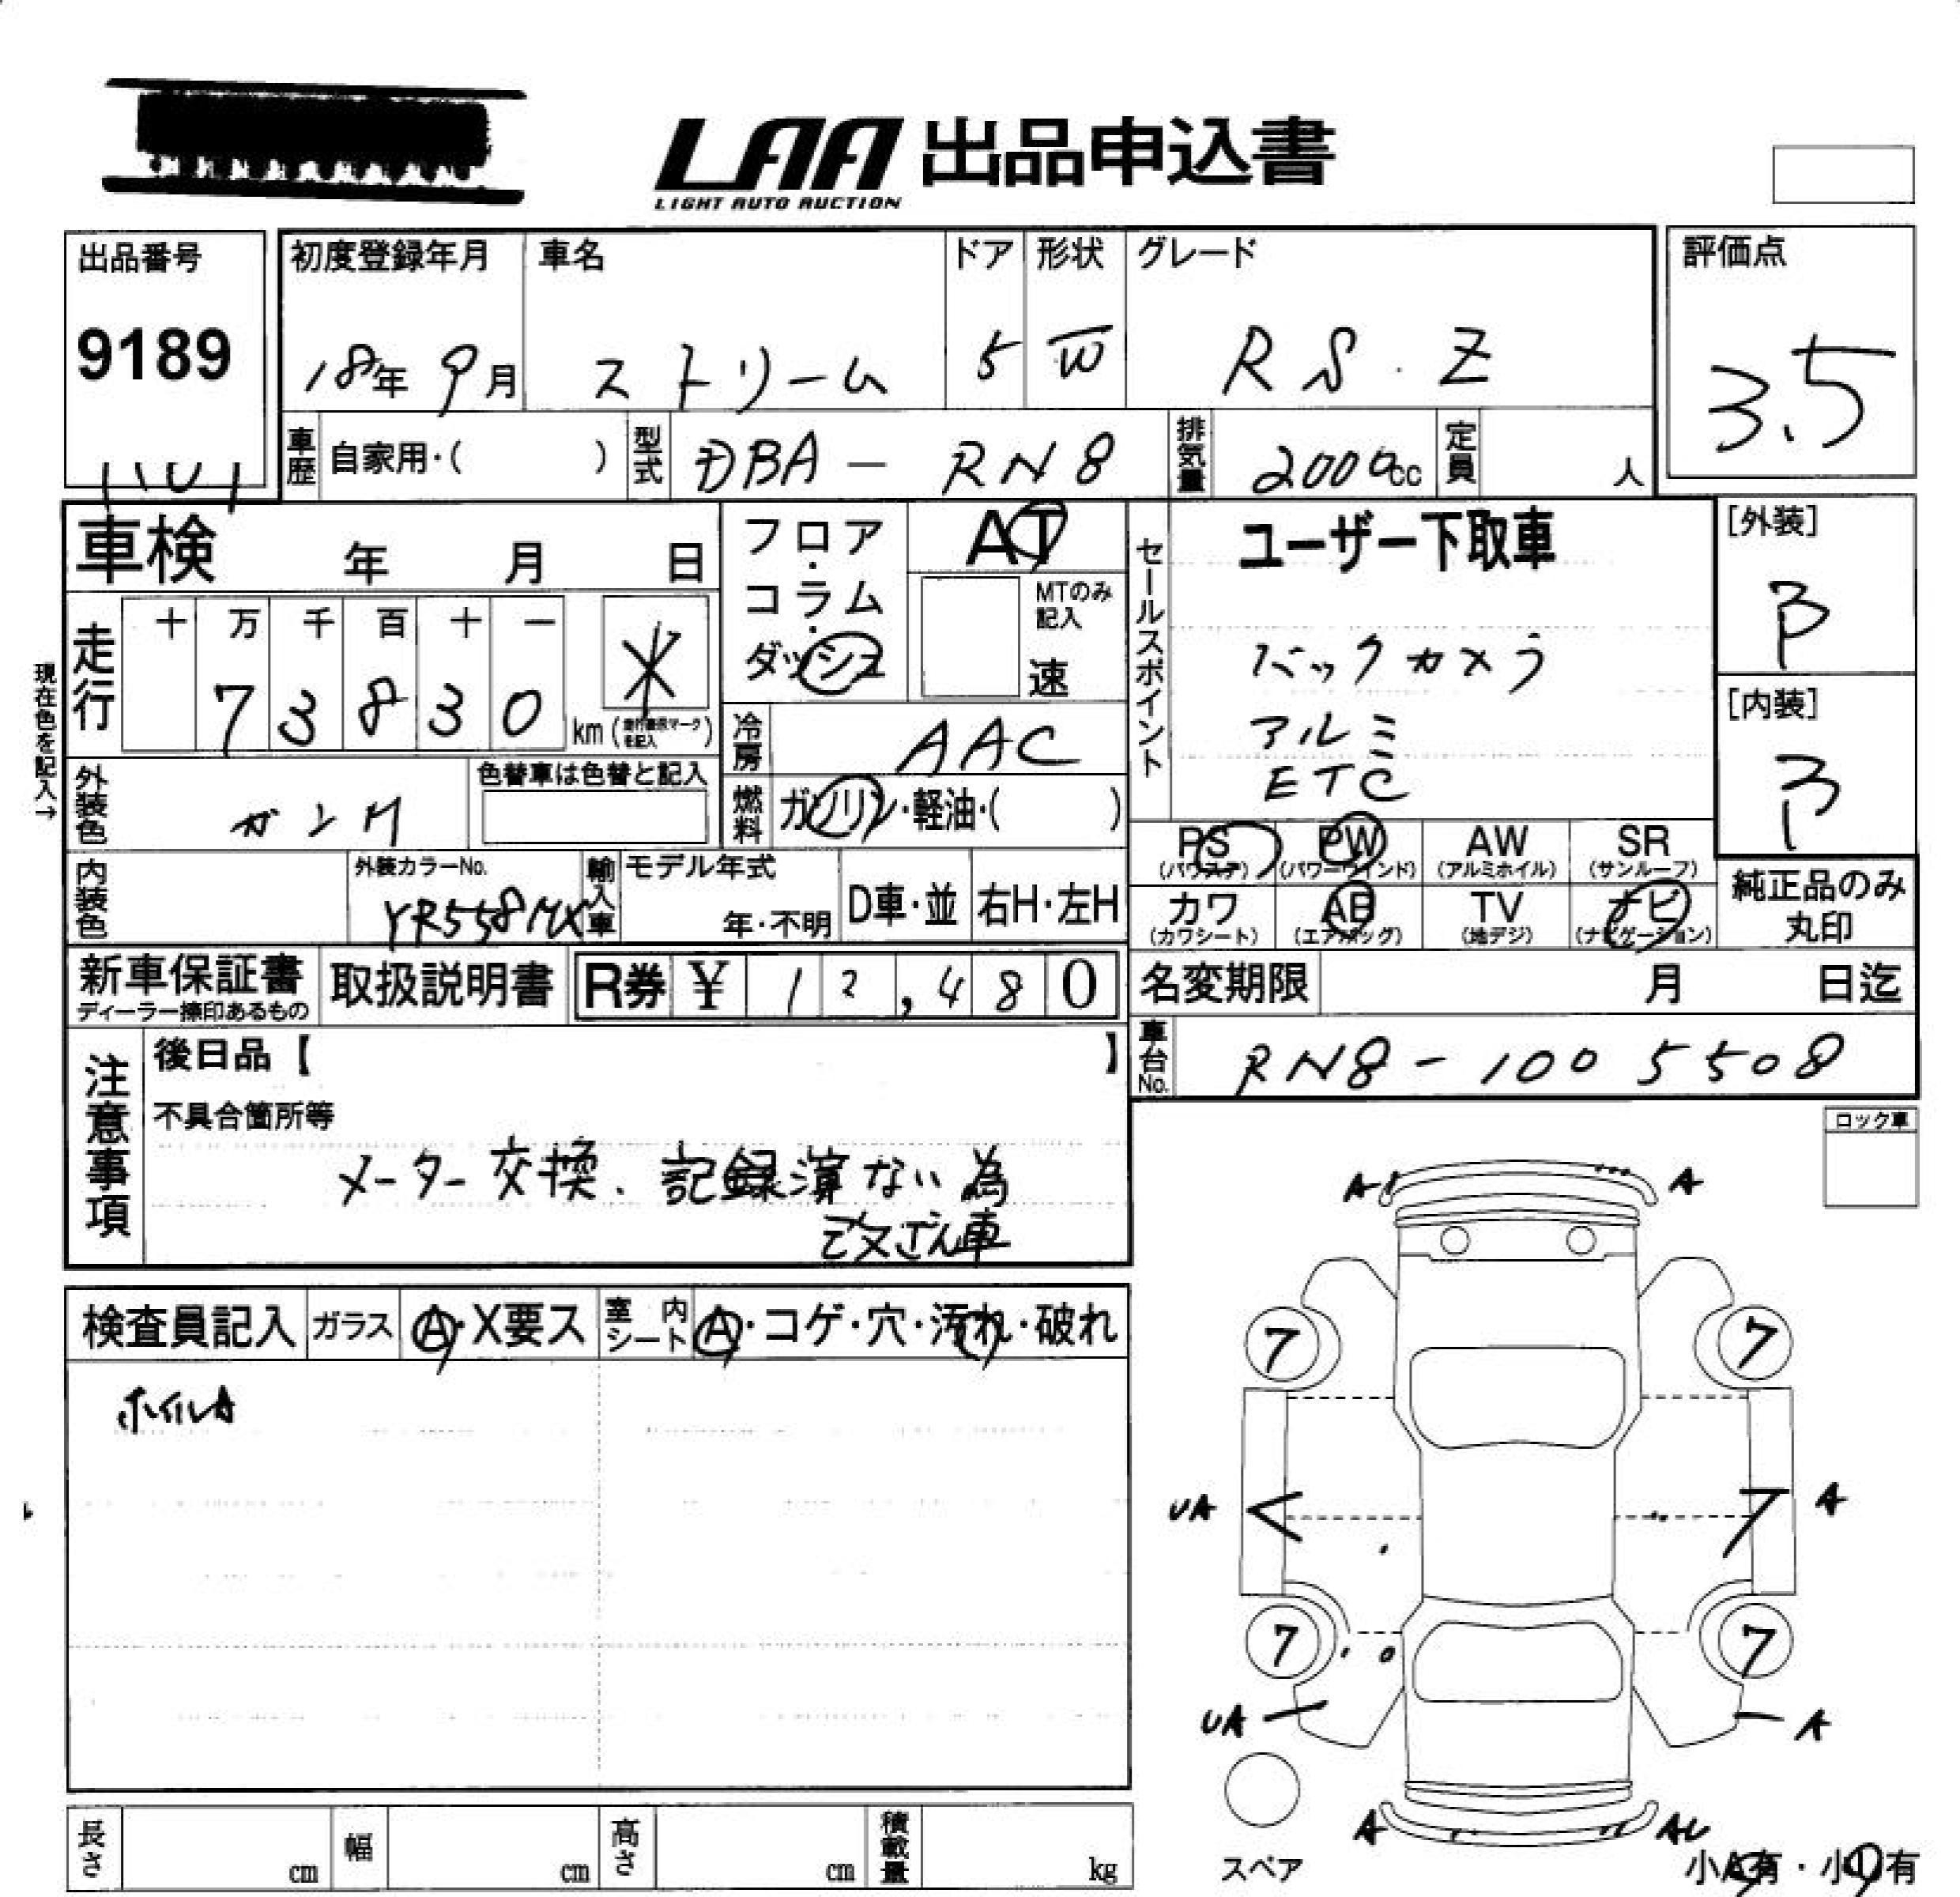 LAA 出品申込書
LIGHT AUTO AUCTION
出品番号
9189
初度登録年月
18年 9月
車名
ストリーム
ドア
5
形状
W
グレード
RS.Z
評価点
3.5
車歴
自家用・( )
型式
DBA - RN8
排気量
2000cc
定員
人
車検 年 月 日
フロア・コラム・ダッシュ
AT
MTのみ記入
速
セールスポイント
ユーザー下取車
バックカメラ
アルミ
ETC
[外装]
B
[内装]
B
現在色を記入→
走行
十 万 千 百 十 一
7 3 8 3 0
km
冷房
AAC
外装色
ガンM
色替車は色替と記入
燃料
ガソリン・軽油・( )
PS PW AW SR
(パワステ) (パワーウインド) (アルミホイル) (サンルーフ)
カワ AB TV ナビ
(カワシート) (エアバッグ) (地デジ) (ナビゲーション)
純正品のみ
丸印
内装色
外装カラーNo.
YR558MX
輸入車
モデル年式
年・不明
D車・並
右H・左H
新車保証書
ディーラー捺印あるもの
取扱説明書
R券 ¥ 12,480
名変期限 月 日迄
車台No.
RN8-1005508
注意事項
後日品【 】
不具合箇所等
メーター交換、記録簿ない為
改ざん車
ロック車
検査員記入
ガラス
A・X要ス
室内シート
A・コゲ・穴・汚れ・破れ
ホイルA
A A
7 7
UA A
7 7
UA A
A AU
スペア
小A有・小U有
長さ cm
幅 cm
高さ cm
積載量 kg